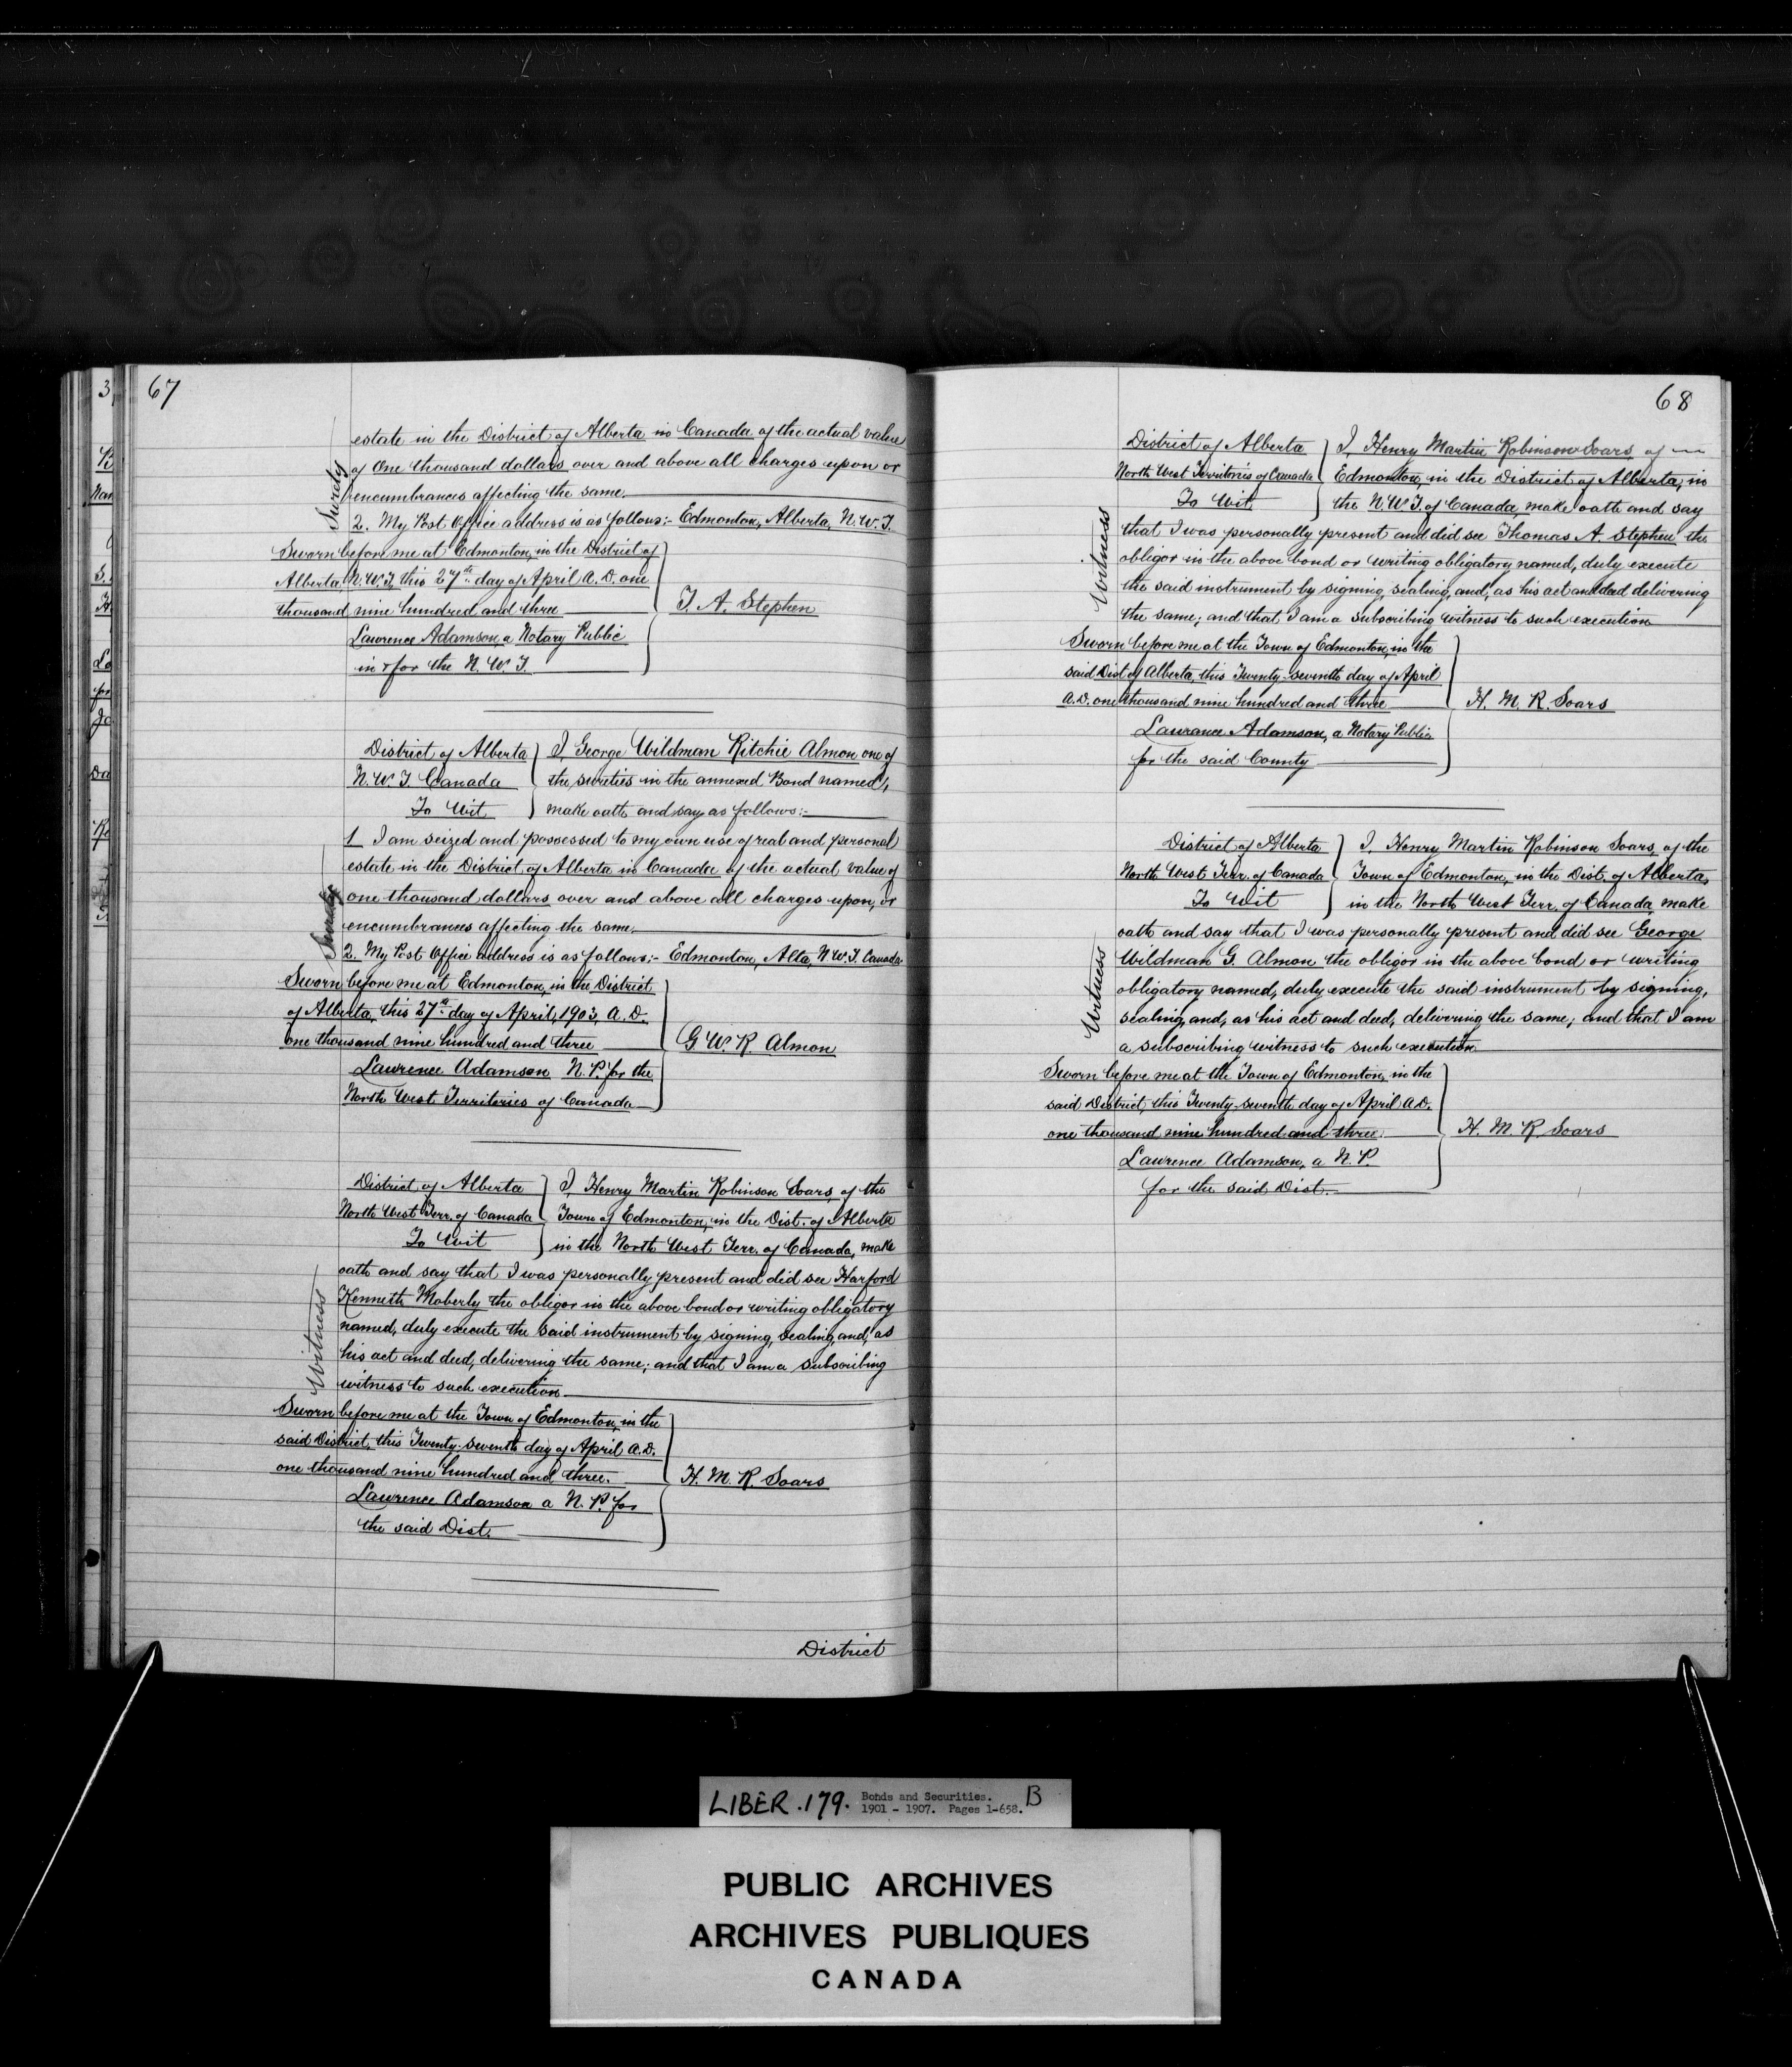 67
estate in the District of Alberta in Canada of the actual value
of One thousand dollars over and above all charges upon or
encumbrances affecting the same.
Surety
2. My Post Office address is as follows:- Edmonton, Alberta, N.W.T.
Sworn before me at Edmonton, in the District of
Alberta, N.W.T. this 27th day of April A.D. one
thousand nine hundred and three
T. A. Stephen
Lawrence Adamson, a Notary Public
in & for the N.W.T.
District of Alberta
N.W.T. Canada
To Wit
I, George Wildman Ritchie Almon one of
the sureties in the annexed Bond named,
make oath and say as follows:-
1 I am seized and possessed to my own use of real and personal
estate in the District of Alberta in Canada of the actual value of
one thousand dollars over and above all charges upon, or
encumbrances affecting the same.
Surety
2. My Post Office address is as follows:- Edmonton, Alta, N.W.T. Canada
Sworn before me at Edmonton, in the District
of Alberta, this 27th day of April, 1903, A.D.
one thousand nine hundred and three
G. W. R. Almon
Lawrence Adamson N.P. for the
North West Territories of Canada
District of Alberta
North West Terr. of Canada
To Wit
I, Henry Martin Robinson Soars, of the
Town of Edmonton, in the Dist. of Alberta
in the North West Terr. of Canada, make
oath and say that I was personally present and did see Harford
Kenneth Moberly the obligor in the above bond or writing obligatory
named, duly execute the said instrument by signing, sealing, and, as
his act and deed, delivering the same; and that I am a subscribing
witness to such execution
Witness
Sworn before me at the Town of Edmonton, in the
said District, this Twenty-seventh day of April A.D.
one thousand nine hundred and three.
H. M. R. Soars
Lawrence Adamson a N.P. for
the said Dist.
District
68
District of Alberta
North West Territories of Canada
To Wit
I, Henry Martin Robinson Soars, of
Edmonton, in the District of Alberta, in
the N.W.T. of Canada, make oath and say
that I was personally present and did see Thomas A. Stephen the
obligor in the above bond or writing obligatory named, duly execute
the said instrument by signing, sealing, and, as his act and deed delivering
the same; and that I am a subscribing witness to such execution
Witness
Sworn before me at the Town of Edmonton, in the
said Dist of Alberta, this Twenty-seventh day of April
A.D. one thousand nine hundred and three
H. M. R. Soars
Lawrance Adamson, a Notary Public
for the said County
District of Alberta
North West Terr. of Canada
To Wit
I, Henry Martin Robinson Soars, of the
Town of Edmonton, in the Dist. of Alberta,
in the North West Terr. of Canada, make
oath and say that I was personally present and did see George
Wildman G. Almon the obligor in the above bond or writing
obligatory named, duly execute the said instrument by signing,
sealing, and, as his act and deed, delivering the same; and that I am
a subscribing witness to such execution
Witness
Sworn before me at the Town of Edmonton, in the
said District, this Twenty-seventh day of April A.D.
one thousand nine hundred and three.
H. M. R. Soars
Lawrence Adamson, a N.P.
for the said Dist.
LIBER .179. Bonds and Securities. B
1901 - 1907. Pages 1-658.
PUBLIC ARCHIVES
ARCHIVES PUBLIQUES
CANADA